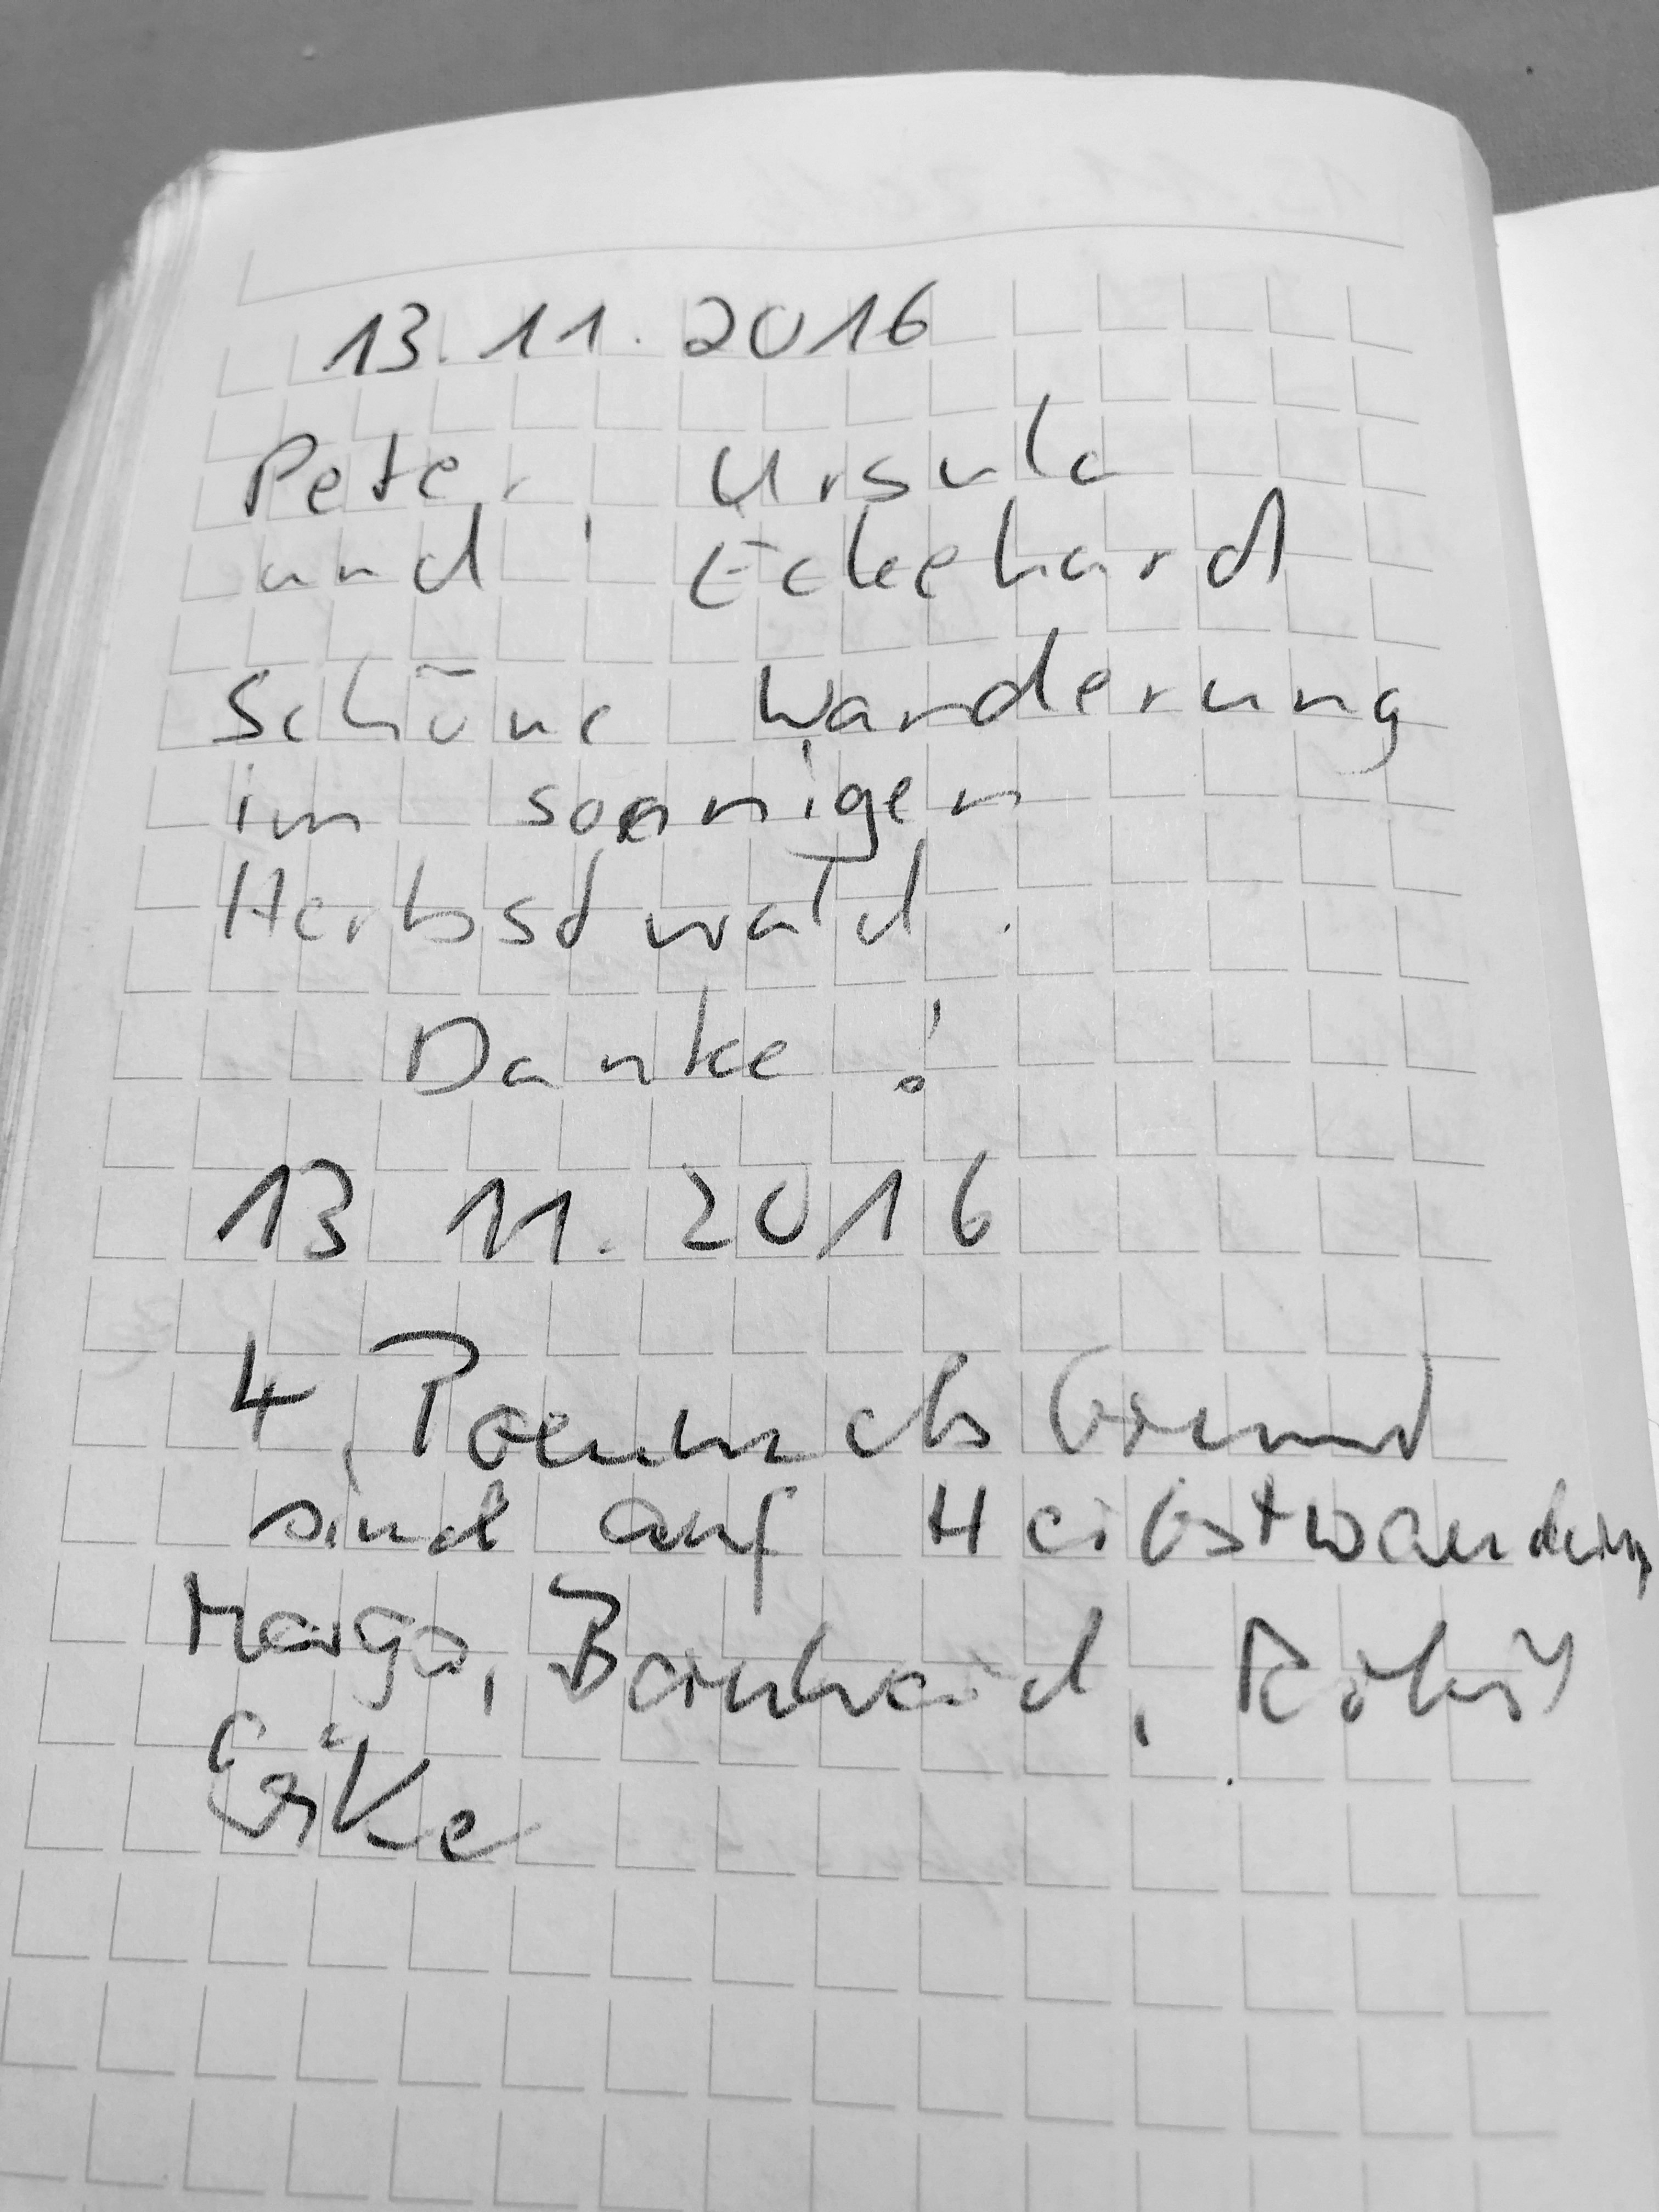 13.11.2016
Peter, Ursula
und Eckehard
Schöne Wanderung
im sonnigen
Herbstwald.
Danke!
13 11. 2016
4
sind auf Herbstwanderung
Margo,